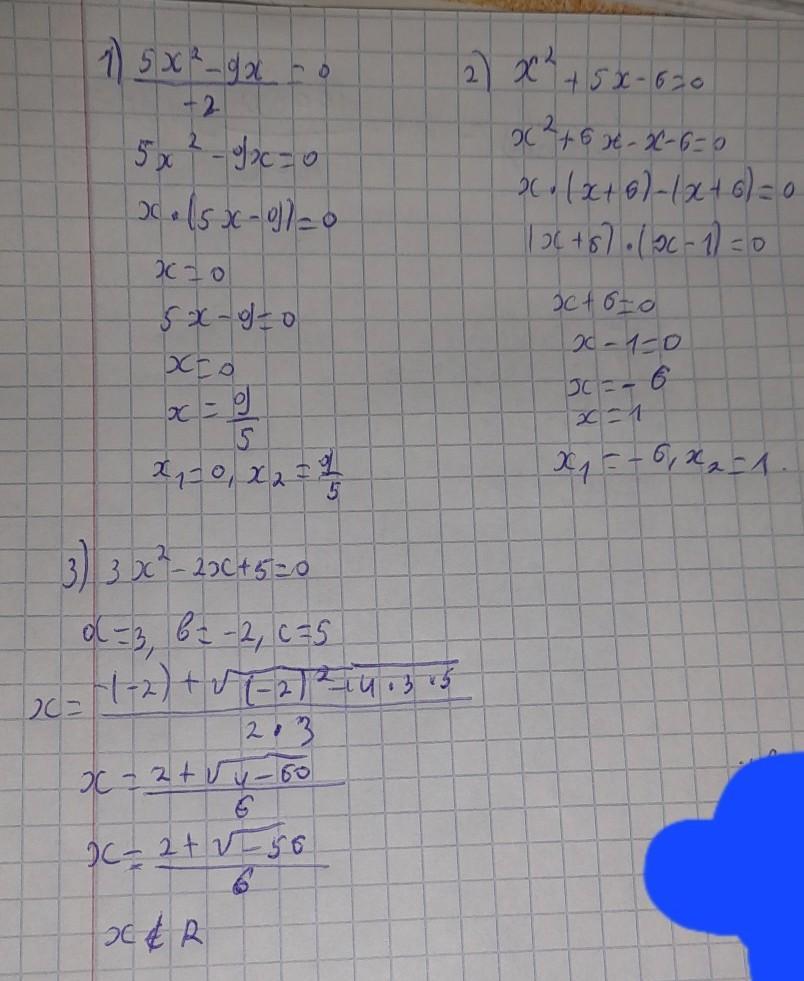 1) (5x² - 9x)/(-2) = 0
5x² - 9x = 0
x · (5x - 9) = 0
x = 0
5x - 9 = 0
x = 0
x = 9/5
x₁ = 0, x₂ = 9/5
2) x² + 5x - 6 = 0
x² + 6x - x - 6 = 0
x · (x + 6) - (x + 6) = 0
(x + 6) · (x - 1) = 0
x + 6 = 0
x - 1 = 0
x = -6
x = 1
x₁ = -6, x₂ = 1.
3) 3x² - 2x + 5 = 0
a = 3, b = -2, c = 5
x = (-(-2) + √((-2)² - 4 · 3 · 5))/(2 · 3)
x = (2 + √(4 - 60))/6
x = (2 + √(-56))/6
x ∉ R